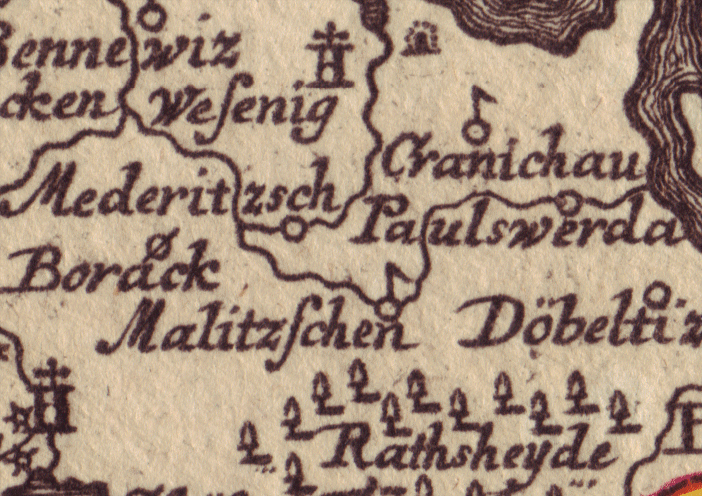 Bennewiz
cken
Weſenig
Cranichau
Mederitzsch
Paulswerda
Borack
Malitzſchen
Döbelti
Rathsheyde